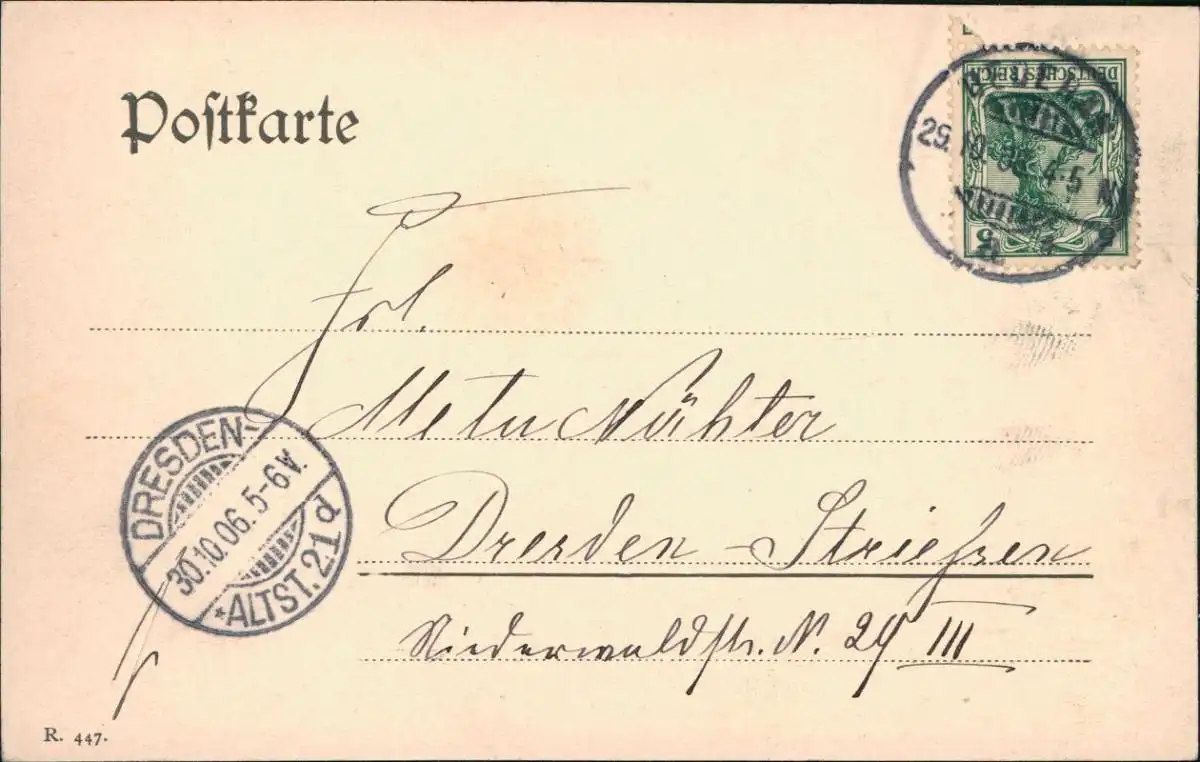 Postkarte
DEUTSCHES REICH
5 5
29.10. 4-5 N
Frl.
Meta Nähter
Dresden-Striessen
Niederwaldstr. N. 29 III
DRESDEN-
30.10.06. 5-6V.
*ALTST. 21 d
R. 447.